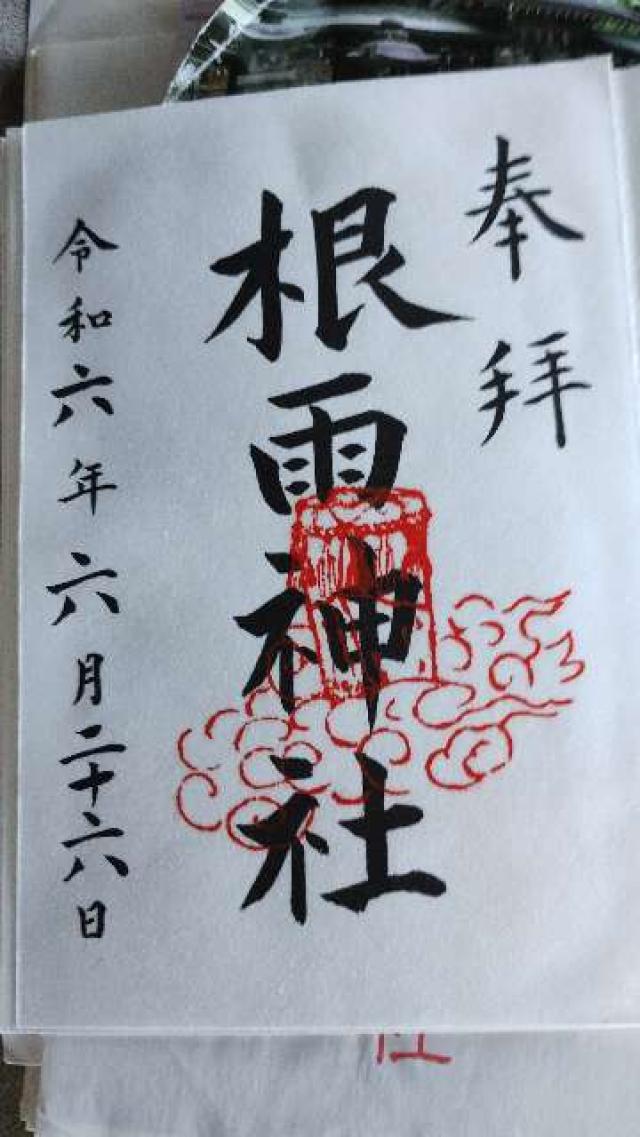 奉拝
根雨神社
令和六年六月二十六日